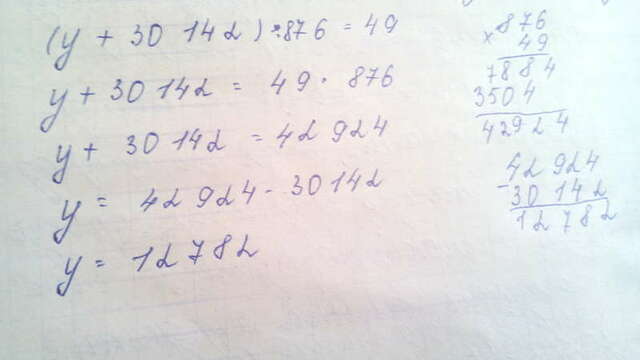 (y + 30 142) : 876 = 49
y + 30142 = 49 · 876
y + 30142 = 42924
y = 42924 - 30142
y = 12782
876
× 49
7884
3504
42924
42924
- 30142
12782